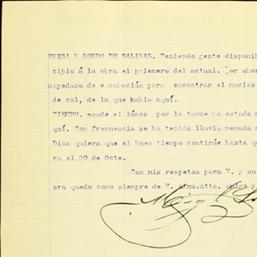 PRESA Y BORDO DE SALINAS. Teniendo gente disponib
cipio á la obra el primero del actual. Por ahor
un pedazo de excabación para encontrar el macizo
de cal, de la que había aquí.
TIEMPO. Desde el lunes por la tarde ha estado
quí. Con frecuencia se ha tenido lluvia menuda
Dios quiera que el buen tiempo continúe hasta qu
ra el 20 de Octe.
Con mis respetos para V. y su
sra quedo como siempre de V. afmo. atto. amigo y